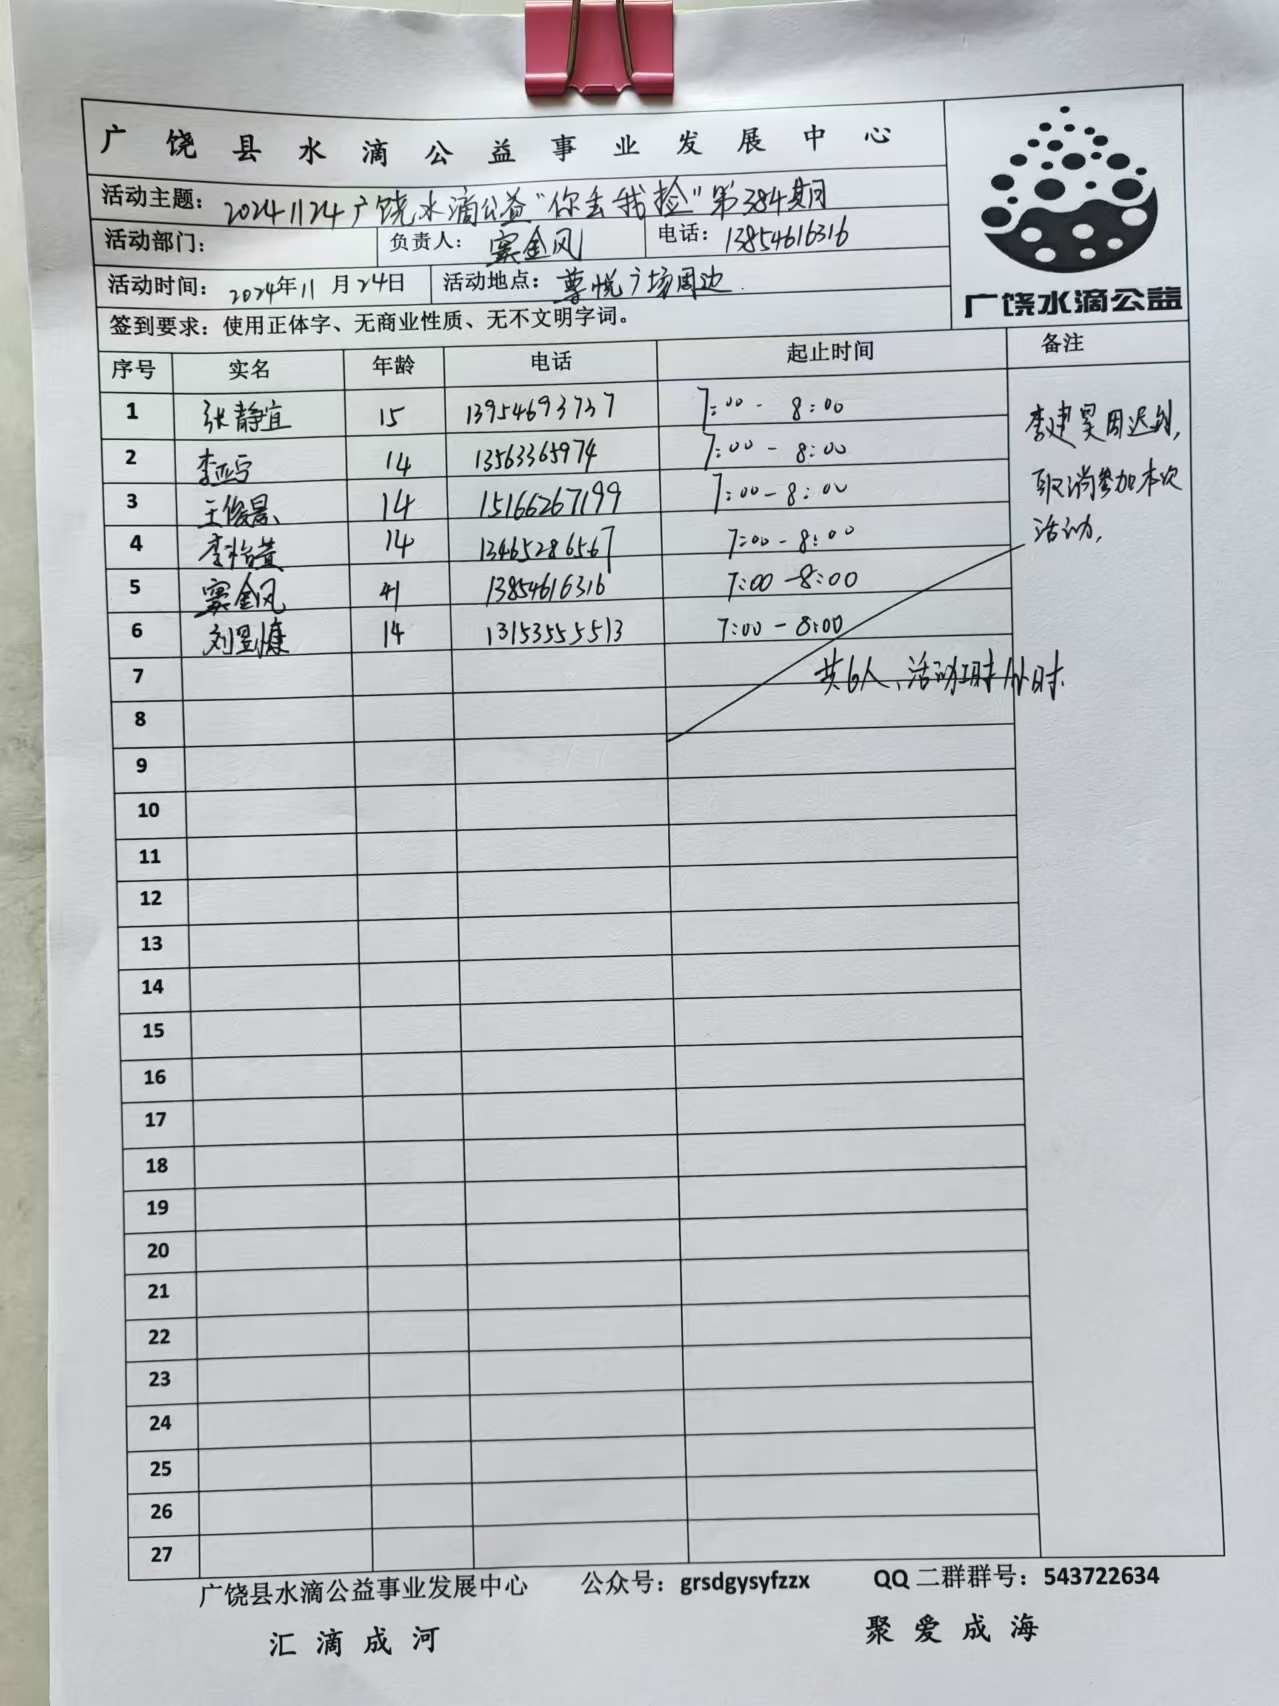 广饶县水滴公益事业发展中心
活动主题：20241124广饶水滴公益“你丢我捡”第384期
活动部门： 负责人：窦金凤 电话：13854616316
活动时间：2024年11月24日 活动地点：尊悦广场周边
签到要求：使用正体字、无商业性质、无不文明字词。
广饶水滴公益
序号 实名 年龄 电话 起止时间 备注
1 张静宜 15 13954693737 7:00-8:00
2 李亚宁 14 13563365974 7:00-8:00
3 王俊景 14 15166267199 7:00-8:00
4 李怡萱 14 13465286567 7:00-8:00
5 窦金凤 41 13854616316 7:00-8:00
6 刘昱慷 14 13153555513 7:00-8:00
李建昊因迟到，
取消参加本次
活动，
7
共6人、活动1小时
8
9
10
11
12
13
14
15
16
17
18
19
20
21
22
23
24
25
26
27
广饶县水滴公益事业发展中心 公众号：grsdgysyfzzx QQ二群群号：543722634
汇滴成河 聚爱成海